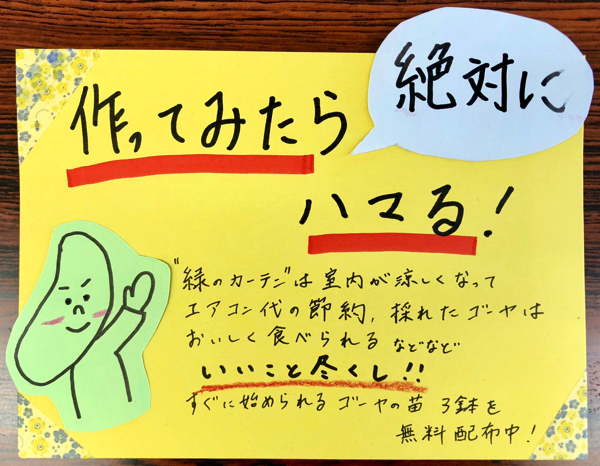 作ってみたら
絶対に
ハマる!
"緑のカーテン"は室内が涼しくなって
エアコン代の節約, 採れたゴーヤは
おいしく食べられる などなど
いいこと尽くし!!
すぐに始められるゴーヤの苗 3鉢を
無料配布中!